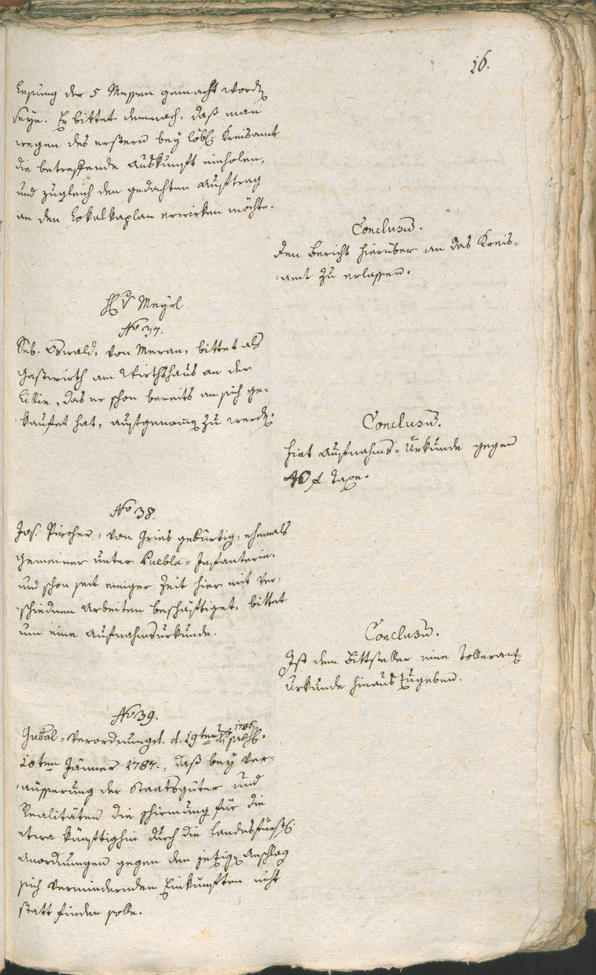 16.
Lesung der 5 Messen gemacht worden
seye. Er bittet demnach, daß man
wegen des erstern bey löbl. Kreisamt
die betreffende Auskunft einholen,
und zugleich den gedachten Auftrag
an den Lokalkaplan erwirken möchte.
Conclusum.
Den Bericht hierüber an das Kreis-
amt zu erlassen.
Meyrl
No 37.
Seb. Oswald, von Meran, bittet als
Gastwirth am Wirthshaus an der
, das er schon bereits an sich ge-
kaufet hat, aufgenommen zu werden.
Conclusum.
Fiat Aufnahms-Urkunde gegen
40 f Taxe.
No 38.
Jos. Pircher, von Gries gebürtig, ehemals
Gemeiner unter Infanterie
und schon seit einiger Zeit hier mit ver-
schiednen Arbeiten beschäftiget, bittet
um eine Aufnahmsurkunde.
Conclusum.
Ist dem Bittsteller eine Tolleranz
Urkunde hinauszugeben.
No 39.
Gubal-Verordnung d. d. 19ten 1786
10ten Jänner 1787., daß bey Ver-
äusserung der Staatsgüter und
Realitäten die Schirmung für die
etwa künftighin durch die landesfürstl.
Anordnungen gegen den jetzigen Anschlag
sich vermindernden Einkünften nicht
statt finden solle.